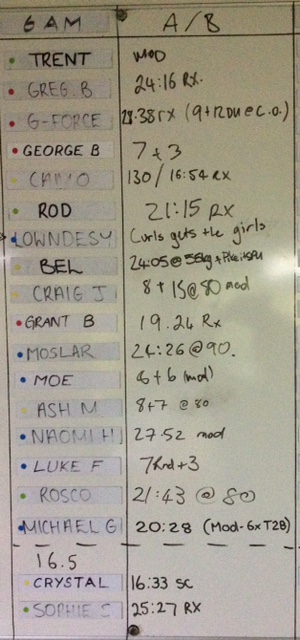 6 AM A/B
TRENT MOD
GREG. B 24:16 RX.
G-FORCE 28.38 RX (9+12DU@C.O.)
GEORGE B 7+3
CAMO 130/16:54 RX
ROD 21:15 RX
LOWNDESY Curls gets the girls
BEL 24:05@55kg + Pike HSPU
CRAIG J 8+15@80 mod
GRANT B 19.24 Rx
MOSLAR 24:26@90.
MOE 6+6 (mod)
ASH M 8+7 @80
NAOMI H 27.52 mod
LUKE F 7Rnd+3
ROSCO 21:43 @ 80
MICHAEL G 20:28 (Mod-6xT2B)
16.5
CRYSTAL 16:33 SC
SOPHIE S 25:27 RX